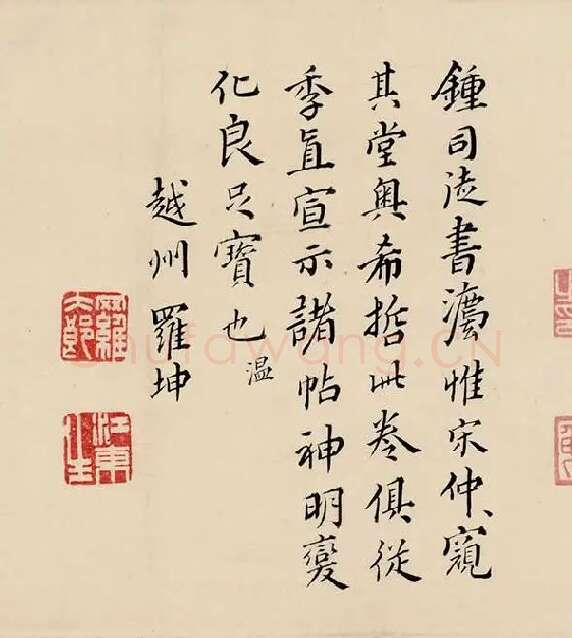 鍾司徒書灋惟宋仲、窺
其堂奥希哲此卷俱從
季直宣示諸帖神明變
化良足寶也
温
越州羅坤
羅坤
江東
shufawang.CN